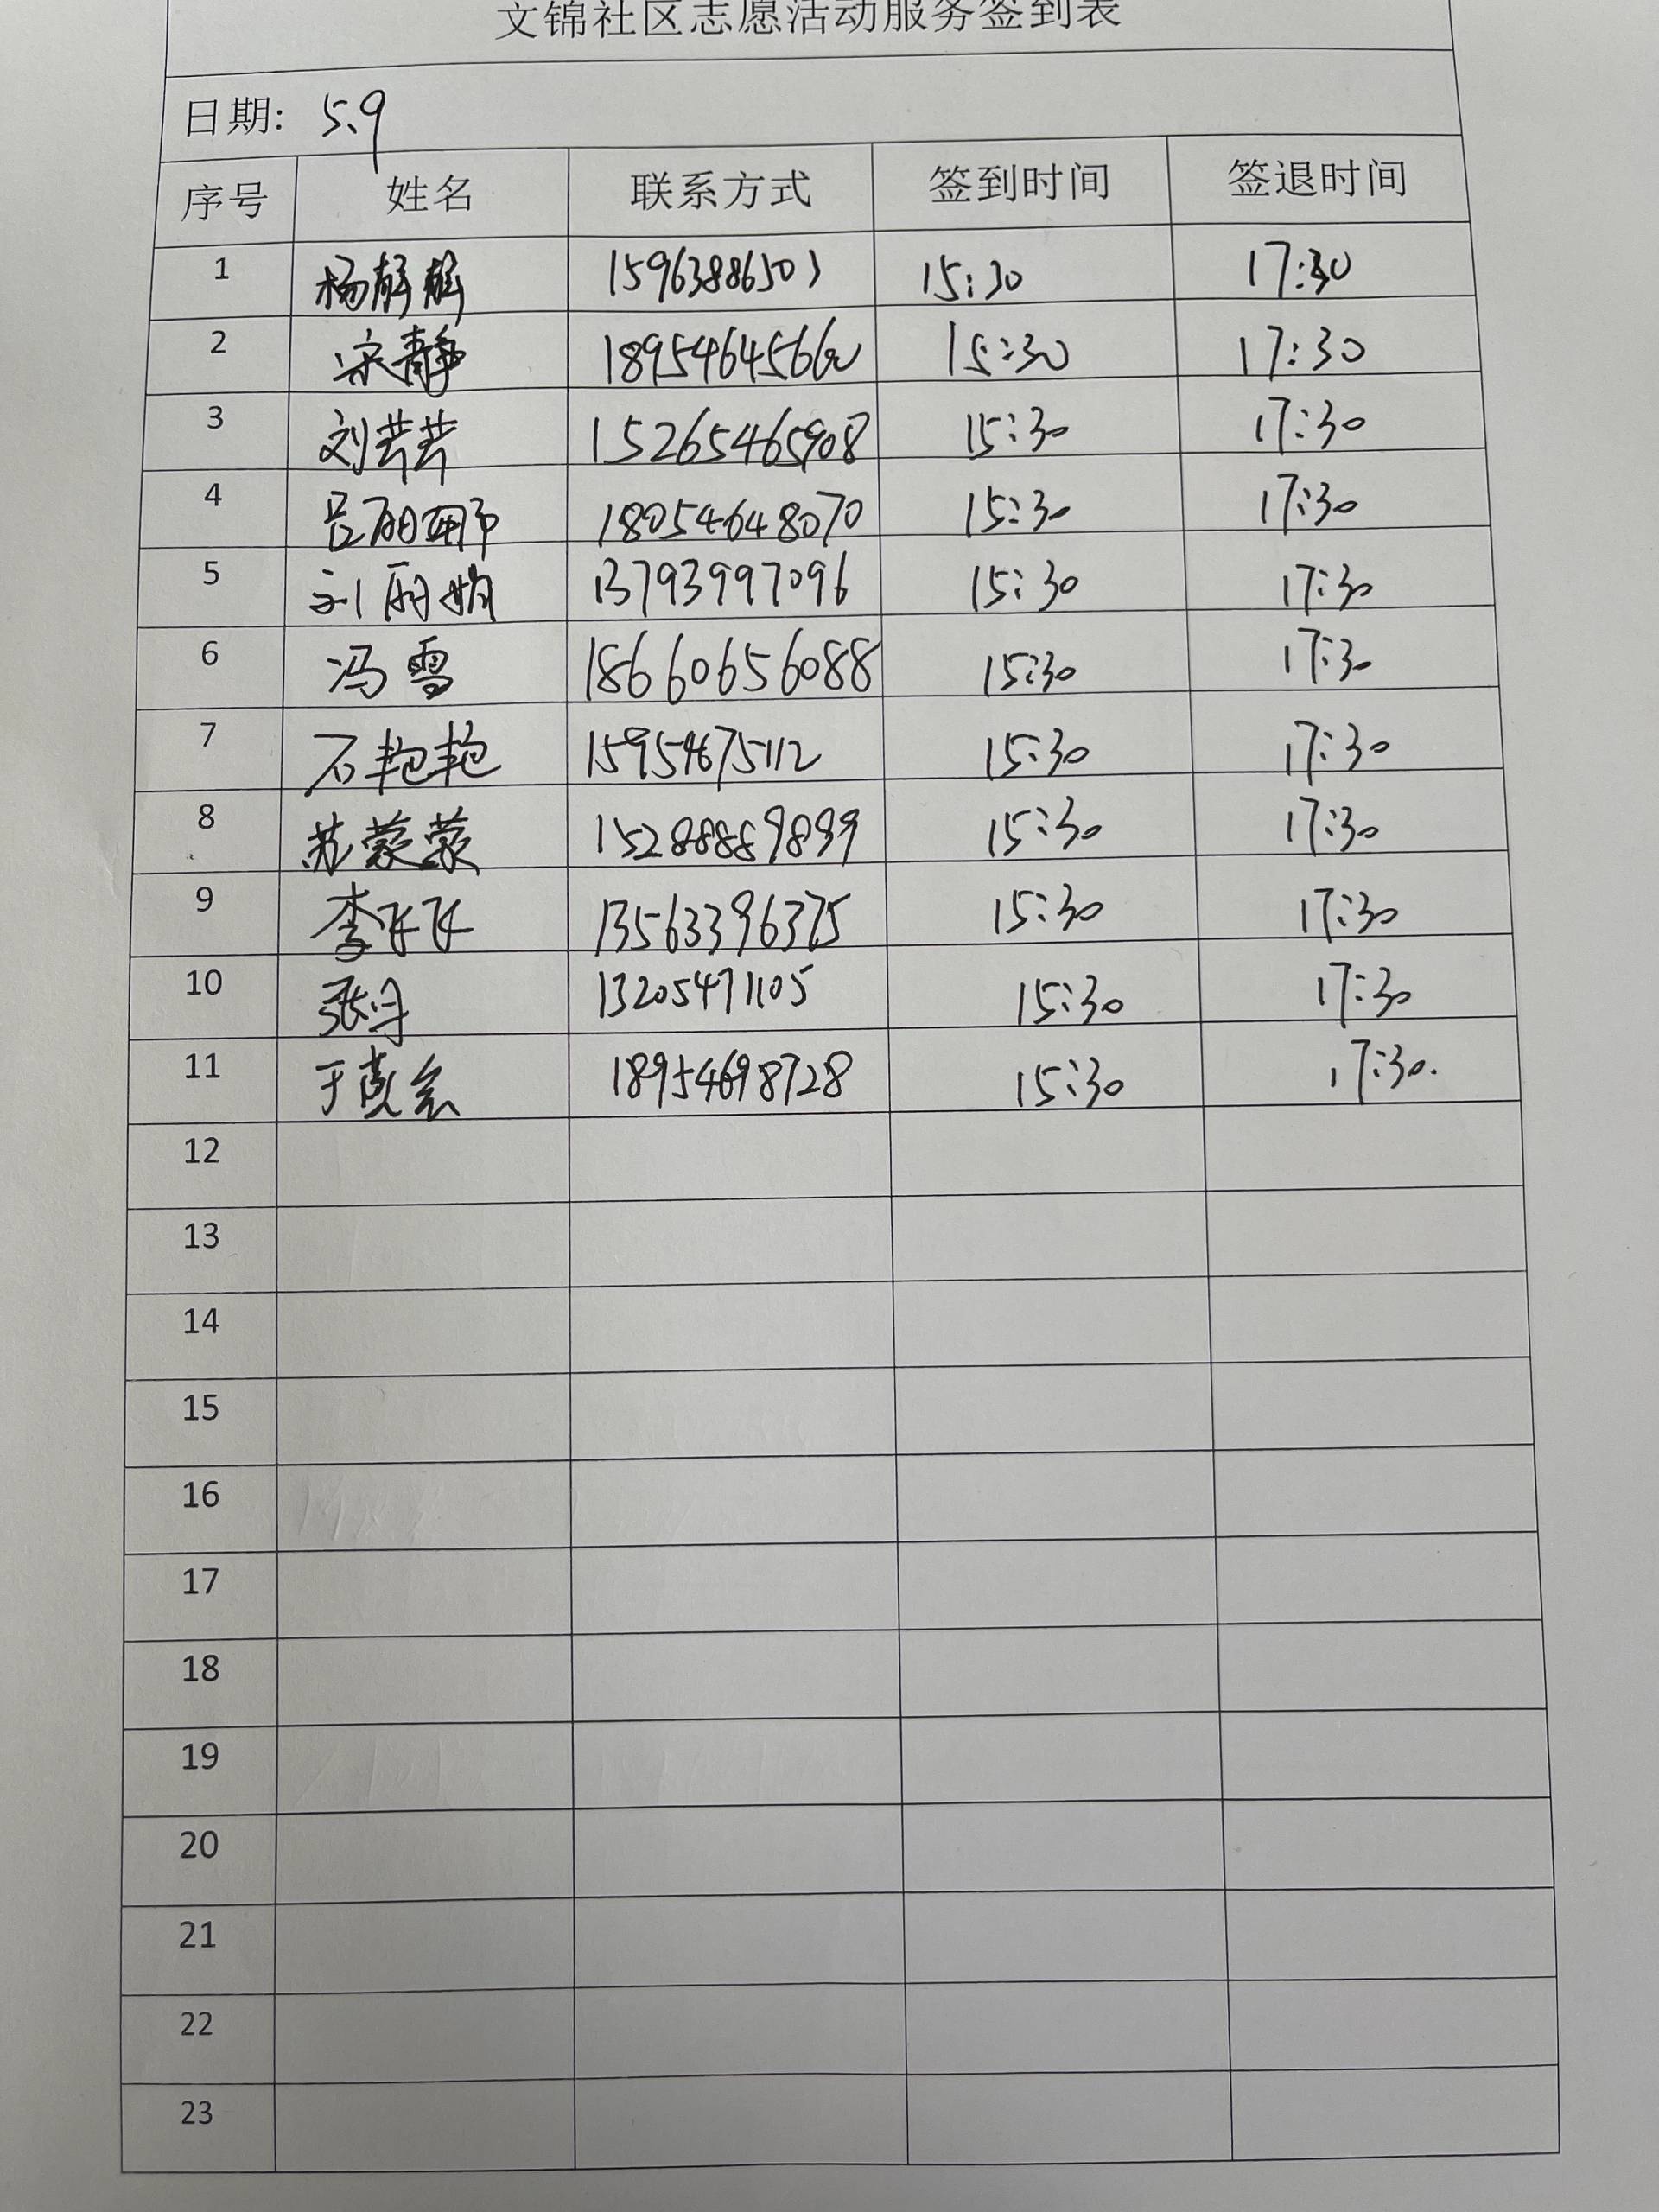 文锦社区志愿活动服务签到表
日期: 5.9
序号 姓名 联系方式 签到时间 签退时间
1 杨静静 15963886503 15:30 17:30
2 宋静 18954645660 15:30 17:30
3 刘芸芸 15265465908 15:30 17:30
4 吕丽娜 18054648070 15:30 17:30
5 刘丽娟 13793997096 15:30 17:30
6 冯雪 18660656088 15:30 17:30
7 石艳艳 15954675112 15:30 17:30
8 苏蒙蒙 15288889899 15:30 17:30
9 李飞飞 13563396375 15:30 17:30
10 张丹 13205471105 15:30 17:30
11 于 18954698728 15:30 17:30.
12
13
14
15
16
17
18
19
20
21
22
23